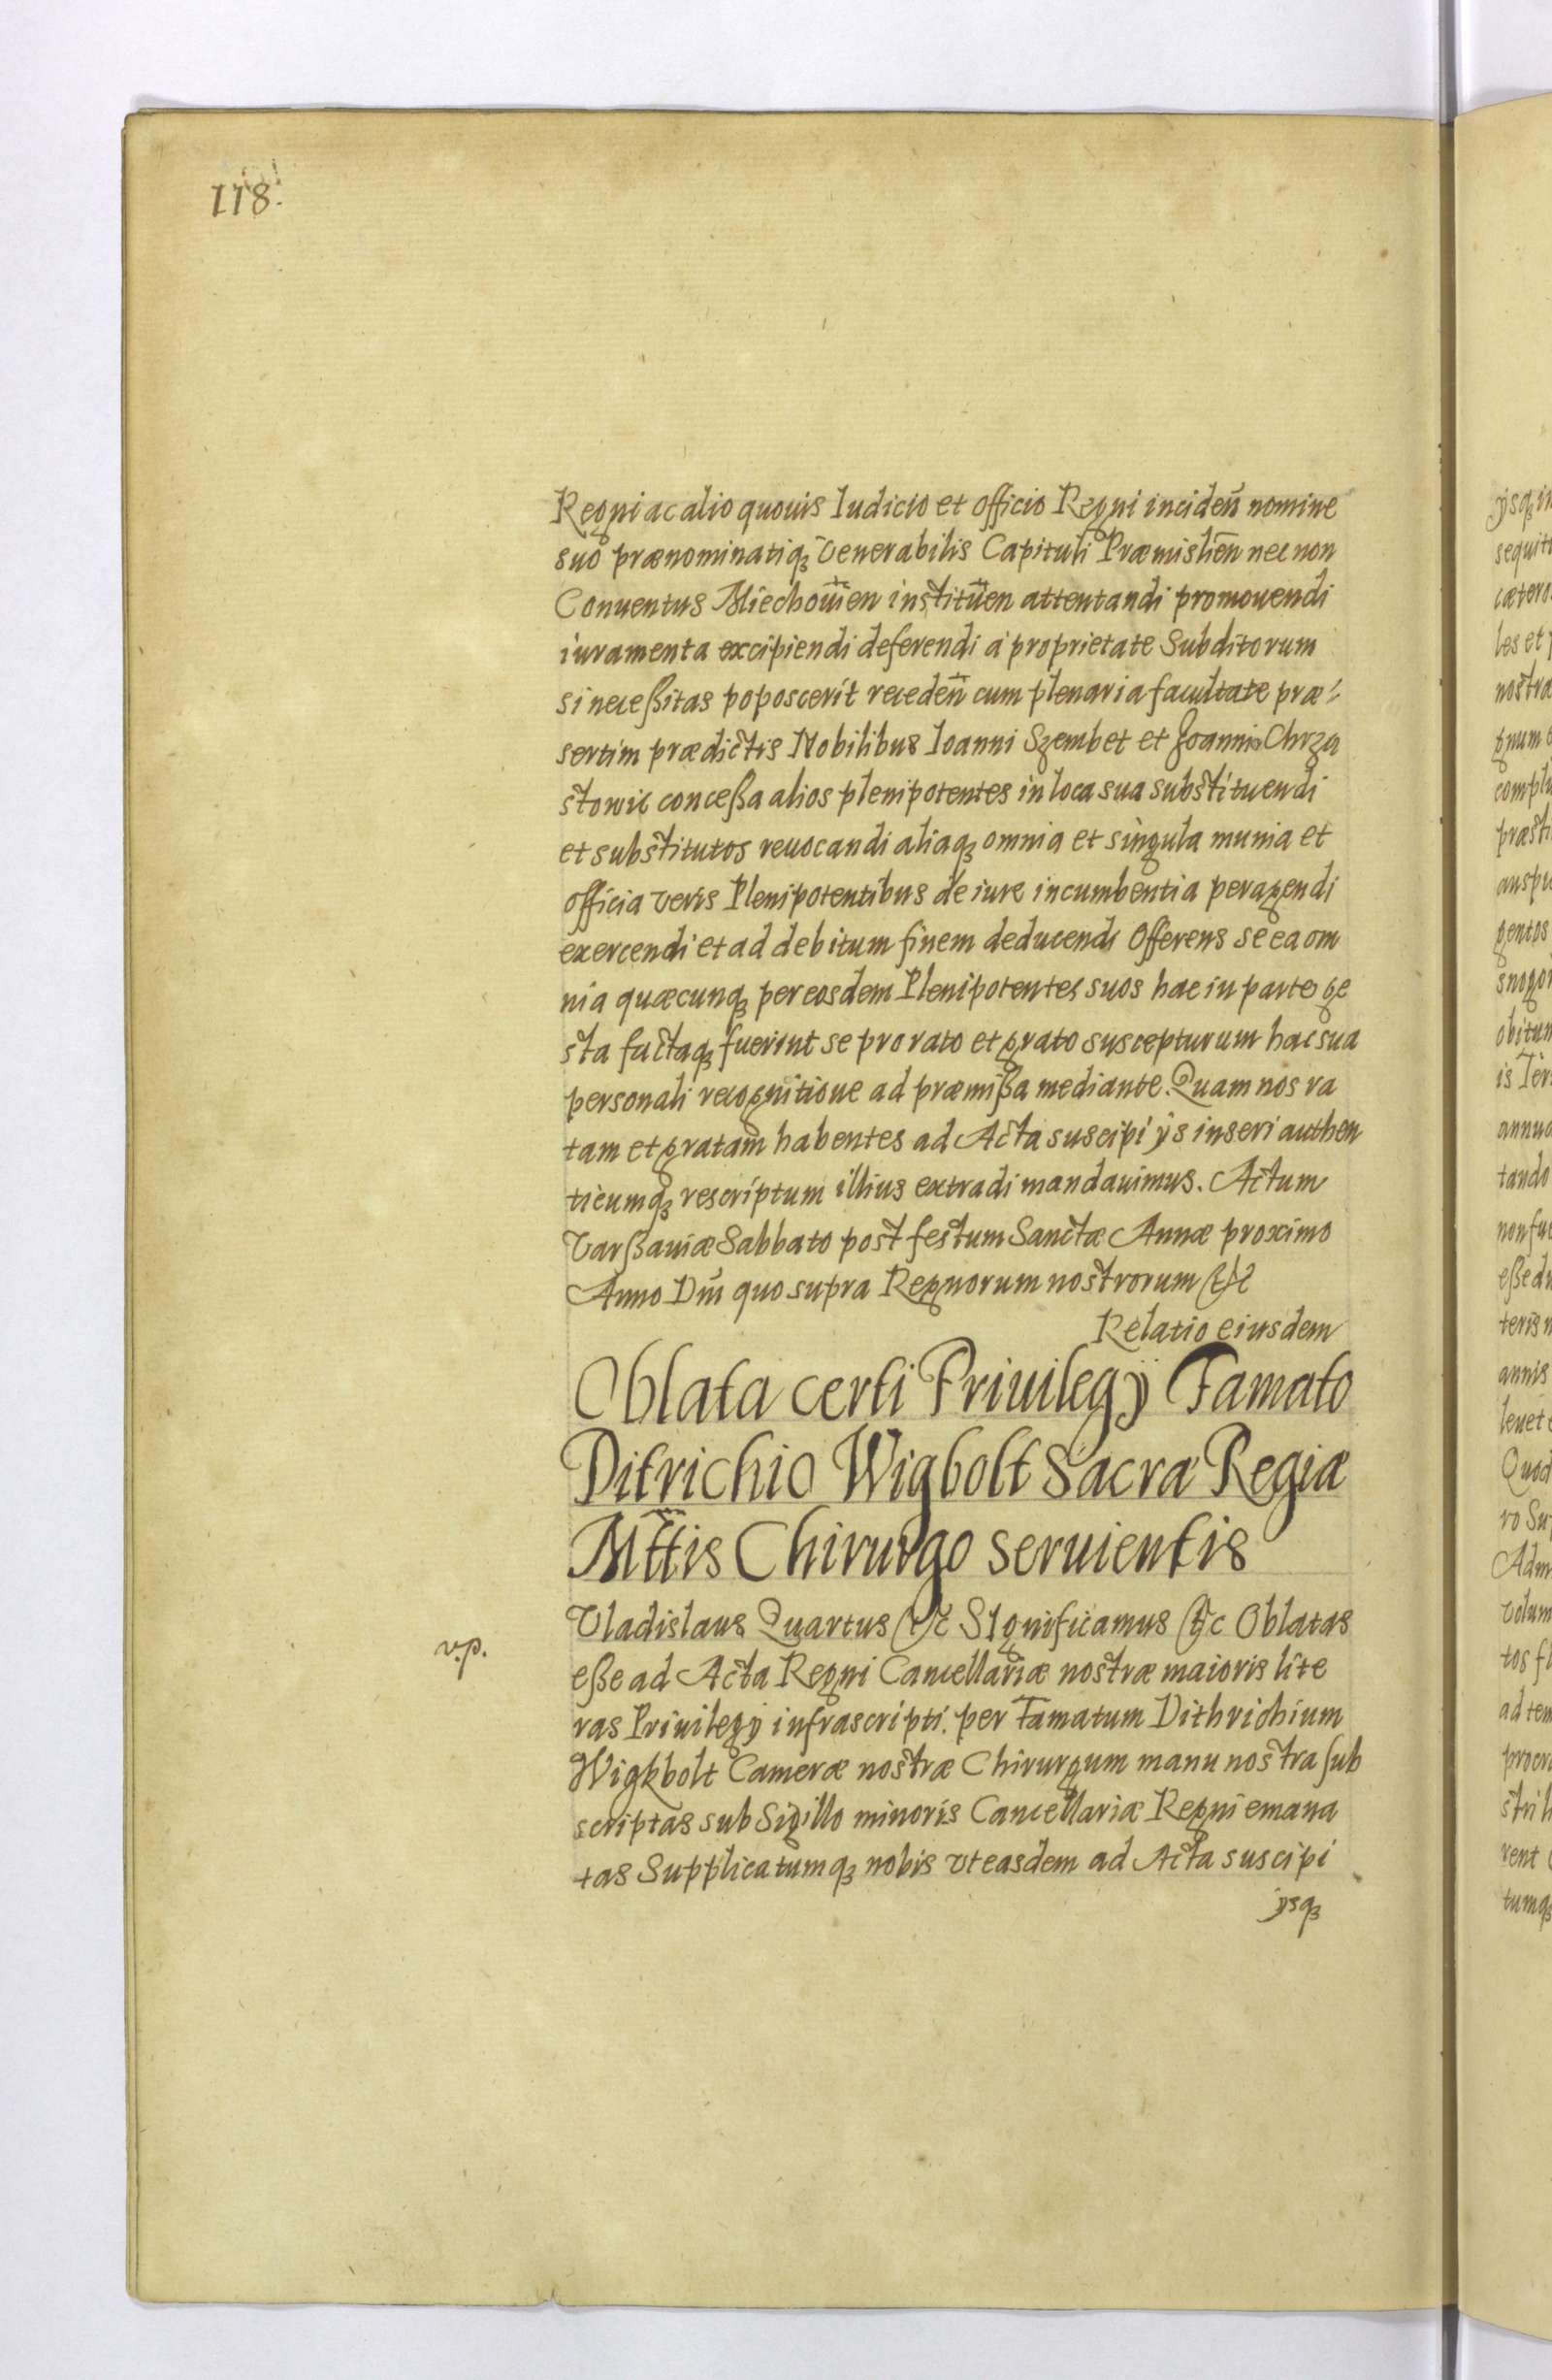 118.
Regni ac alio quouis Iudicio et officio Regni inciden̄ nomine
suo prænominatiq₃ Venerabilis Capituli Præmislien̄ nec non
Conuentus Miechouien̄ institueñ attentandi promouendi
iuramenta excipiendi deferendi a proprietate Subditorum
si neceßitas poposcerit receden̄ cum plenaria facultate præ
sertim prædictis Nobilibus Ioanni Szembet et Joanni Chrza
stowic conceßa alios plenipotentes in loca sua substituendi
et substitutos reuocandi aliaq₃ omnia et singula munia et
officia veris Plenipotentibus de iure incumbentia peragendi
exercendi et ad debitum finem deducendi Offerens se ea om
nia quæcunq₃ per eosdem Plenipotentes suos hac in parte ge
sta factaq₃ fuerint se pro rato et grato suscepturum hac sua
personali recognitione ad præmißa mediante. Quam nos ra
tam et gratam habentes ad Acta suscipi ÿs inseri authen
ticumq₃ rescriptum illius extradi mandauimus. Actum
Varßauiæ Sabbato post festum Sanctæ Annæ proximo
Anno Dn̄i quo supra Regnorum nostrorum &c
Relatio eiusdem
Oblata certi Priuilegÿ Famato
Ditrichio Wigbolt Sacræ Regiæ
Mttis Chirurgo seruientis
Vladislaus Quartus &c SIgnificamus &c Oblatas
v.p.
eße ad Acta Regni Cancellariæ nostræ maioris lite
ras Priuilegÿ infrascripti. per Famatum Dithrichium
Wigkbolt Cameræ nostræ Chirurgum manu nostra sub
scriptas sub Sigillo minoris Cancellariæ Regni emana
tas Supplicatumq₃ nobis vt easdem ad Acta suscipi
ÿsq₃